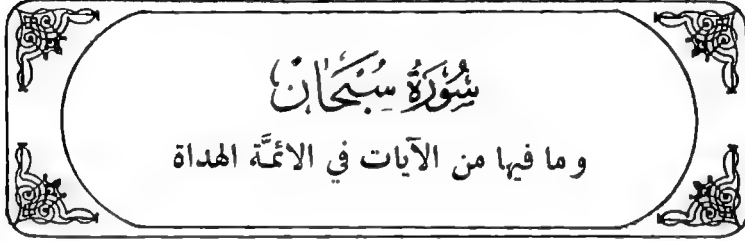 سُورَةُ سُبْحَان
و ما فيها من الآيات في الائمَّة الهداة